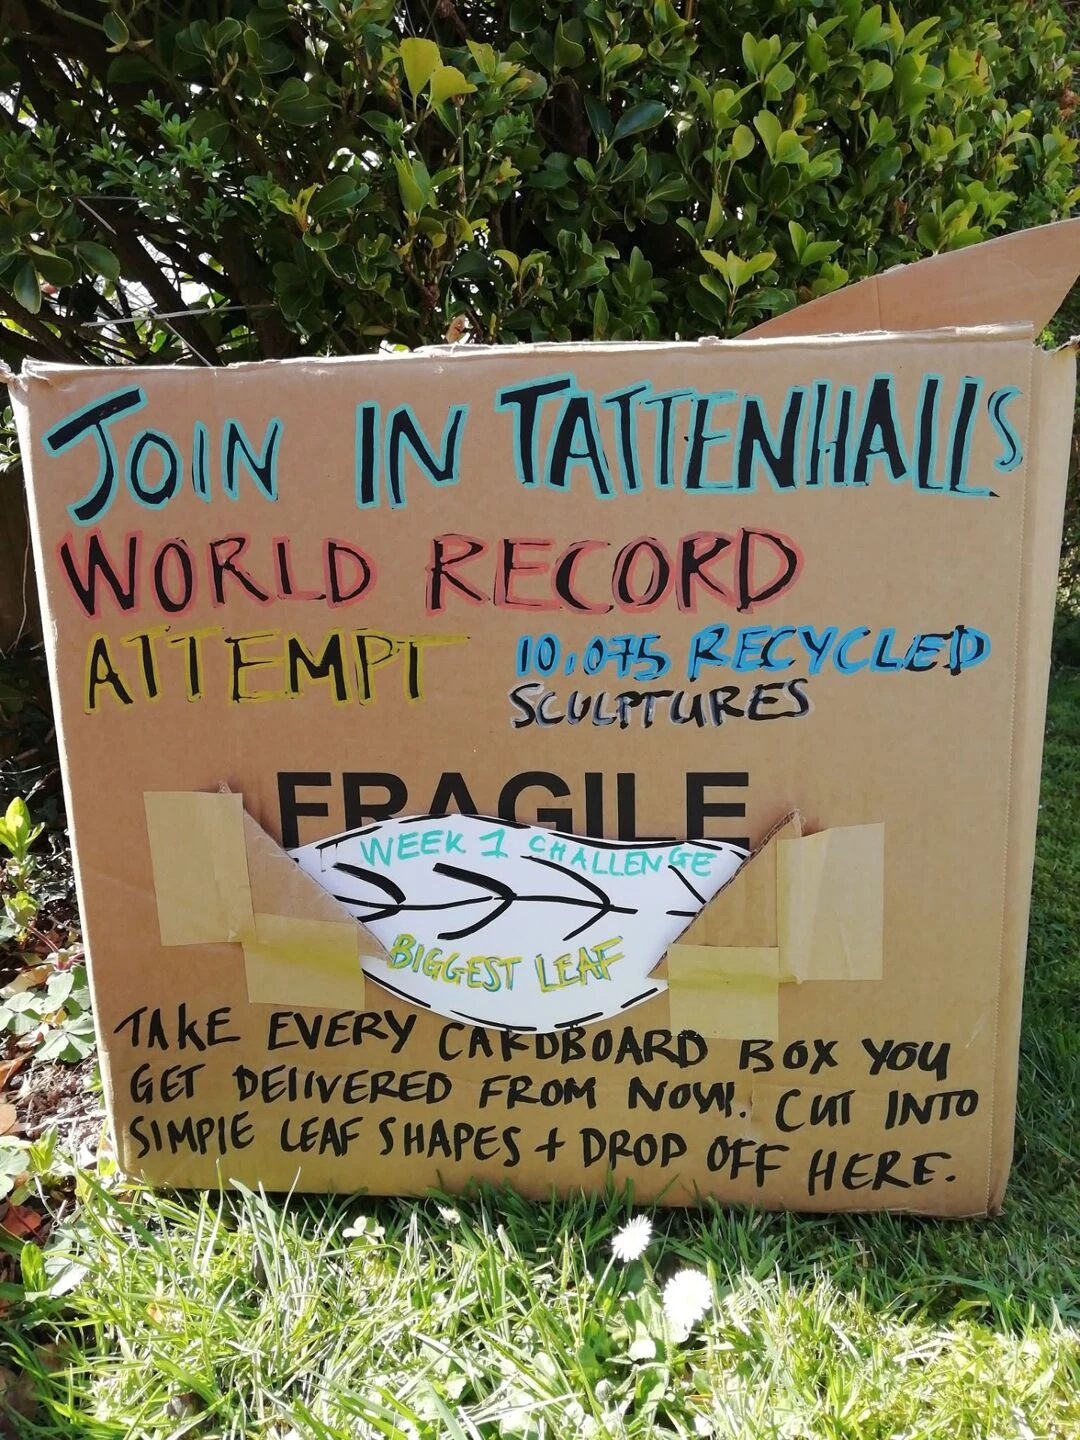 JOIN IN TATTENHALLS
WORLD RECORD
ATTEMPT 10,075 RECYCLED
SCULPTURES
FRAGILE
WEEK 1 CHALLENGE
BIGGEST LEAF
TAKE EVERY CARDBOARD BOX YOU
GET DELIVERED FROM NOW. CUT INTO
SIMPLE LEAF SHAPES + DROP OFF HERE.